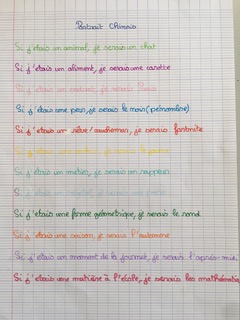 Portrait Chinois
Si j'étais un animal, je serais un chat
Si j'étais un aliment, je serais une carotte
Si j'étais un, je serais
Si j'étais une peur, je serais le noir (pénombre)
Si j'étais un rêve/cauchemar, je serais fortnite
Si j'étais
Si j'étais un métier, je serais un rappeur
Si j'étais un
Si j'étais une forme géométrique, je serais le rond
Si j'étais une saison, je serais l'automne
Si j'étais un moment de la journée, je serais l'après-midi
Si j'étais une matière à l'école, je serais les mathématiques